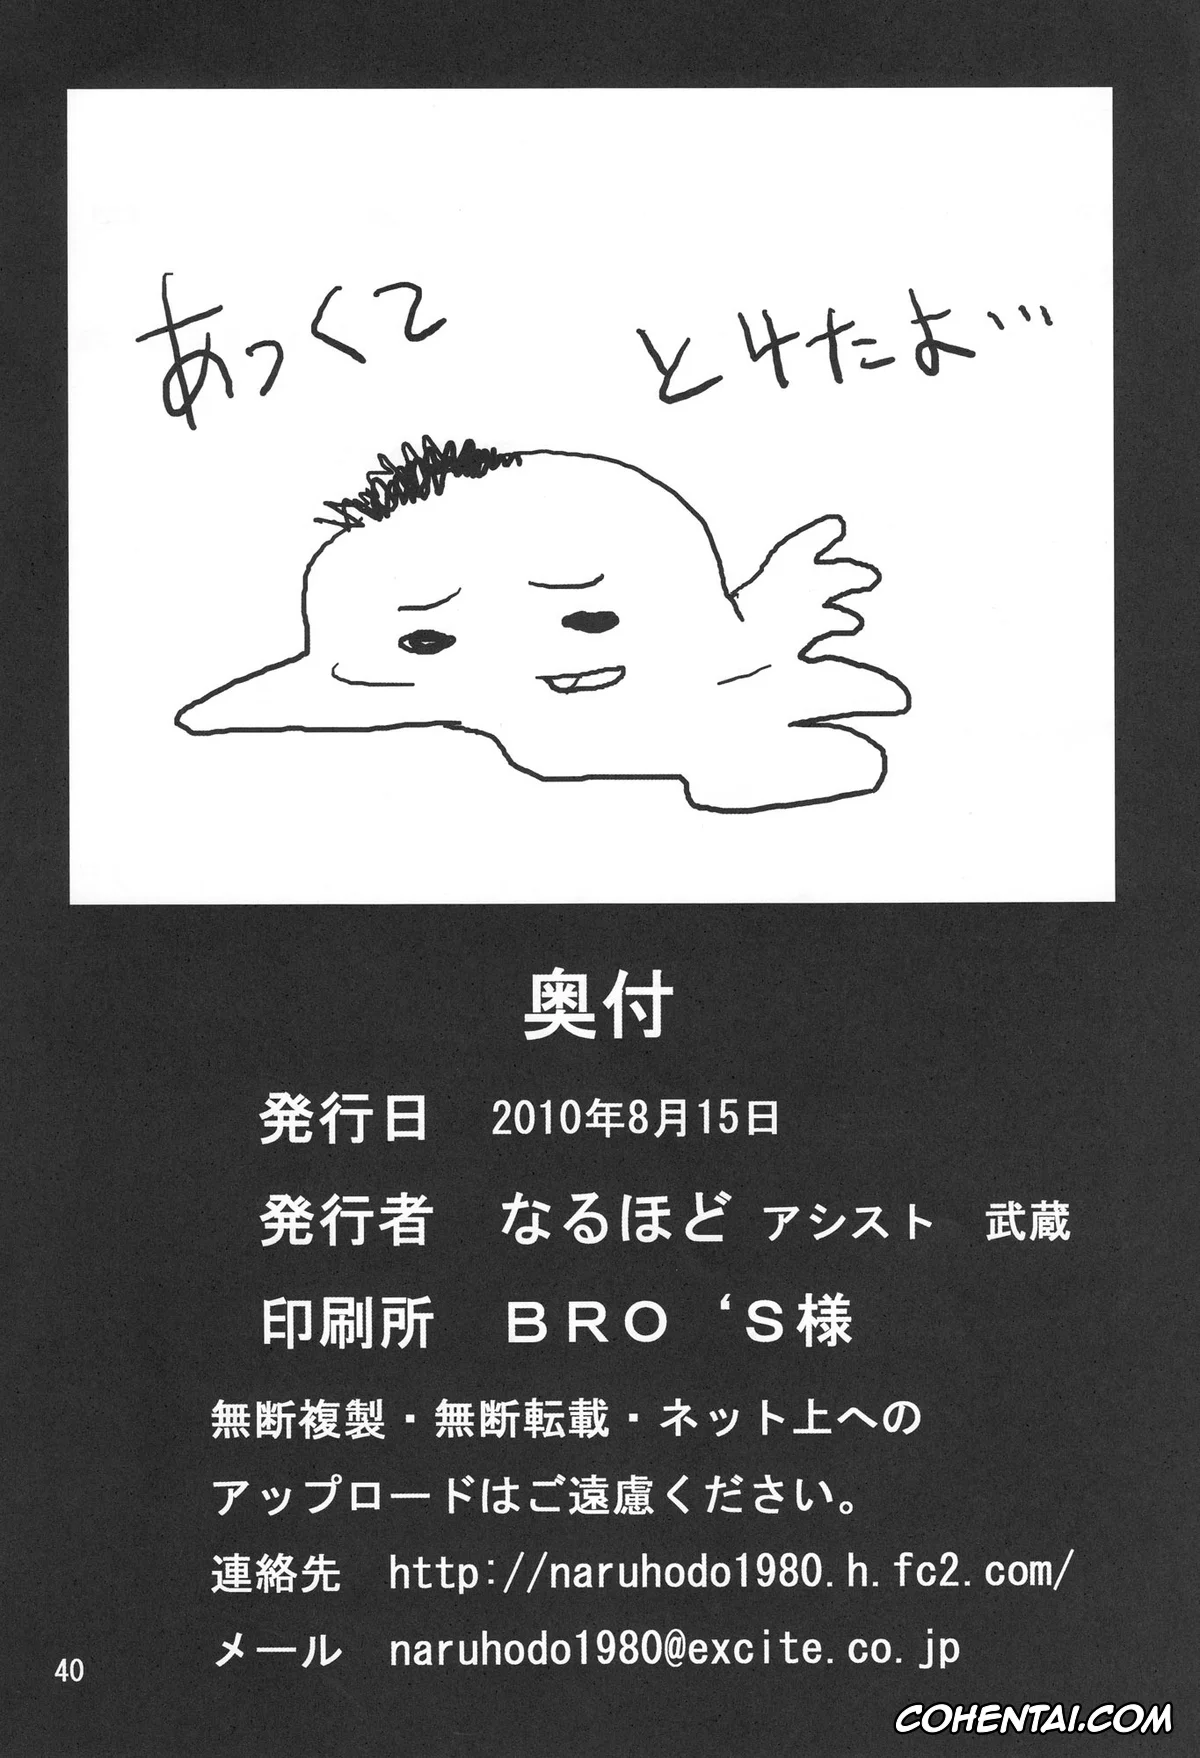 あっくて とけたよ…
奥付
発行日 2010年8月15日
発行者 なるほど アシスト 武蔵
印刷所 ＢＲＯ‘Ｓ様
無断複製・無断転載・ネット上への
アップロードはご遠慮ください。
連絡先 http://naruhodo1980.h.fc2.com/
メール naruhodo1980@excite.co.jp
40
COHENTAI.COM